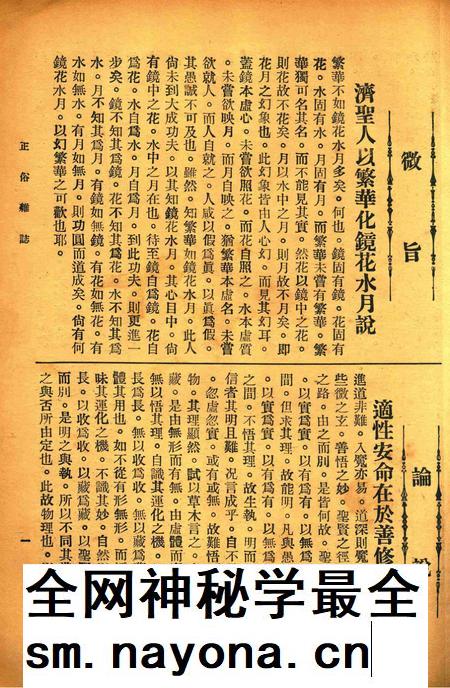 微旨
濟聖人以繁華化鏡花水月說
繁華不如鏡花水月多矣。何也。鏡固有鏡。花固有
花。水固有水。月固有月。而繁華未嘗有繁華。繁
華獨可名其名。而不能見其實。然花以鏡中之花。
則花故不花矣。月以水中之月。則月故不月矣。即
花月之幻象也。此幻象皆由人心幻。而見其幻耳。
蓋鏡本虛心。未嘗欲照花。而花自照之。水本虛質
。未嘗欲映月。而月自映之。猶繁華本虛名。未嘗
欲就人。而人自就之。人咸以假為眞。以眞為假。
其愚誠不可及也。雖然。知繁華如鏡花水月。此人
尙未到大成功夫。以其知鏡花水月。其心目中。尙
有鏡中之花。水中之月在也。待至鏡自為鏡。花自
為花。水自為水。月自為月。到此功夫。則更進一
步矣。鏡不知其為鏡。花不知其為花。水不知其為
水。月不知其為月。有鏡如無鏡。有花如無花。有
水如無水。有月如無月。則功圓而道成矣。尙有何
鏡花水月。以幻繁華之可歡也耶。
正俗雜誌
論
適性安命在於善修
進道非難。入冤亦易。道深則冤
些微之玄。善悟之妙。聖賢之徑
之路。由之而別。是皆何故。聖
間。但求其理。故能明。凡與愚
以實為實。以有為有。以無為
之間。不悟其理。故生執。明而
信者其明且難。況言成乎。自不
。忽虛忽實。或有或無。故難悟
物。其理顯然。試以草木言之。
藏。是由無形而有無。由虛體而
無以悟其理。自識其運化之機。
長為長。無以收為收。無以藏為
體其用也。如不從有形無形。而
味其運化之機。不識其妙。自然
長。以收為收。以藏為藏。以聖
而別。是明之與執。所以不同其
之與否所由定也。此故物理也。
一
全网神秘学最全
sm.nayona.cn